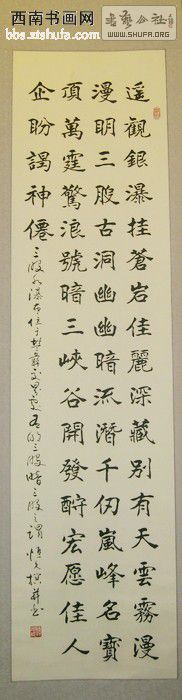 西南书画网
bbs.xtshufa.com
书艺公社
WWW.SHUFA.ORG
遥觀銀瀑挂蒼岩佳麗深藏别有天雲霧漫
漫明三股古洞幽幽暗流潛千仞嵐峰名寶
頂萬霆驚浪號暗三峽谷開發酧宏愿佳人
企盼謁神僊
三股水瀑布位于
有明三股暗三股之謂